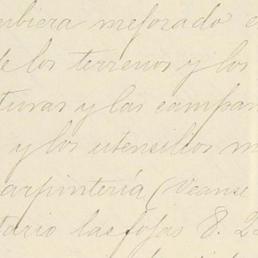 hubiera mejorado
de los terrenos y los
turas y las campan
y los utensilios m
arpintería (Veanse
tario las fojas 8. 2